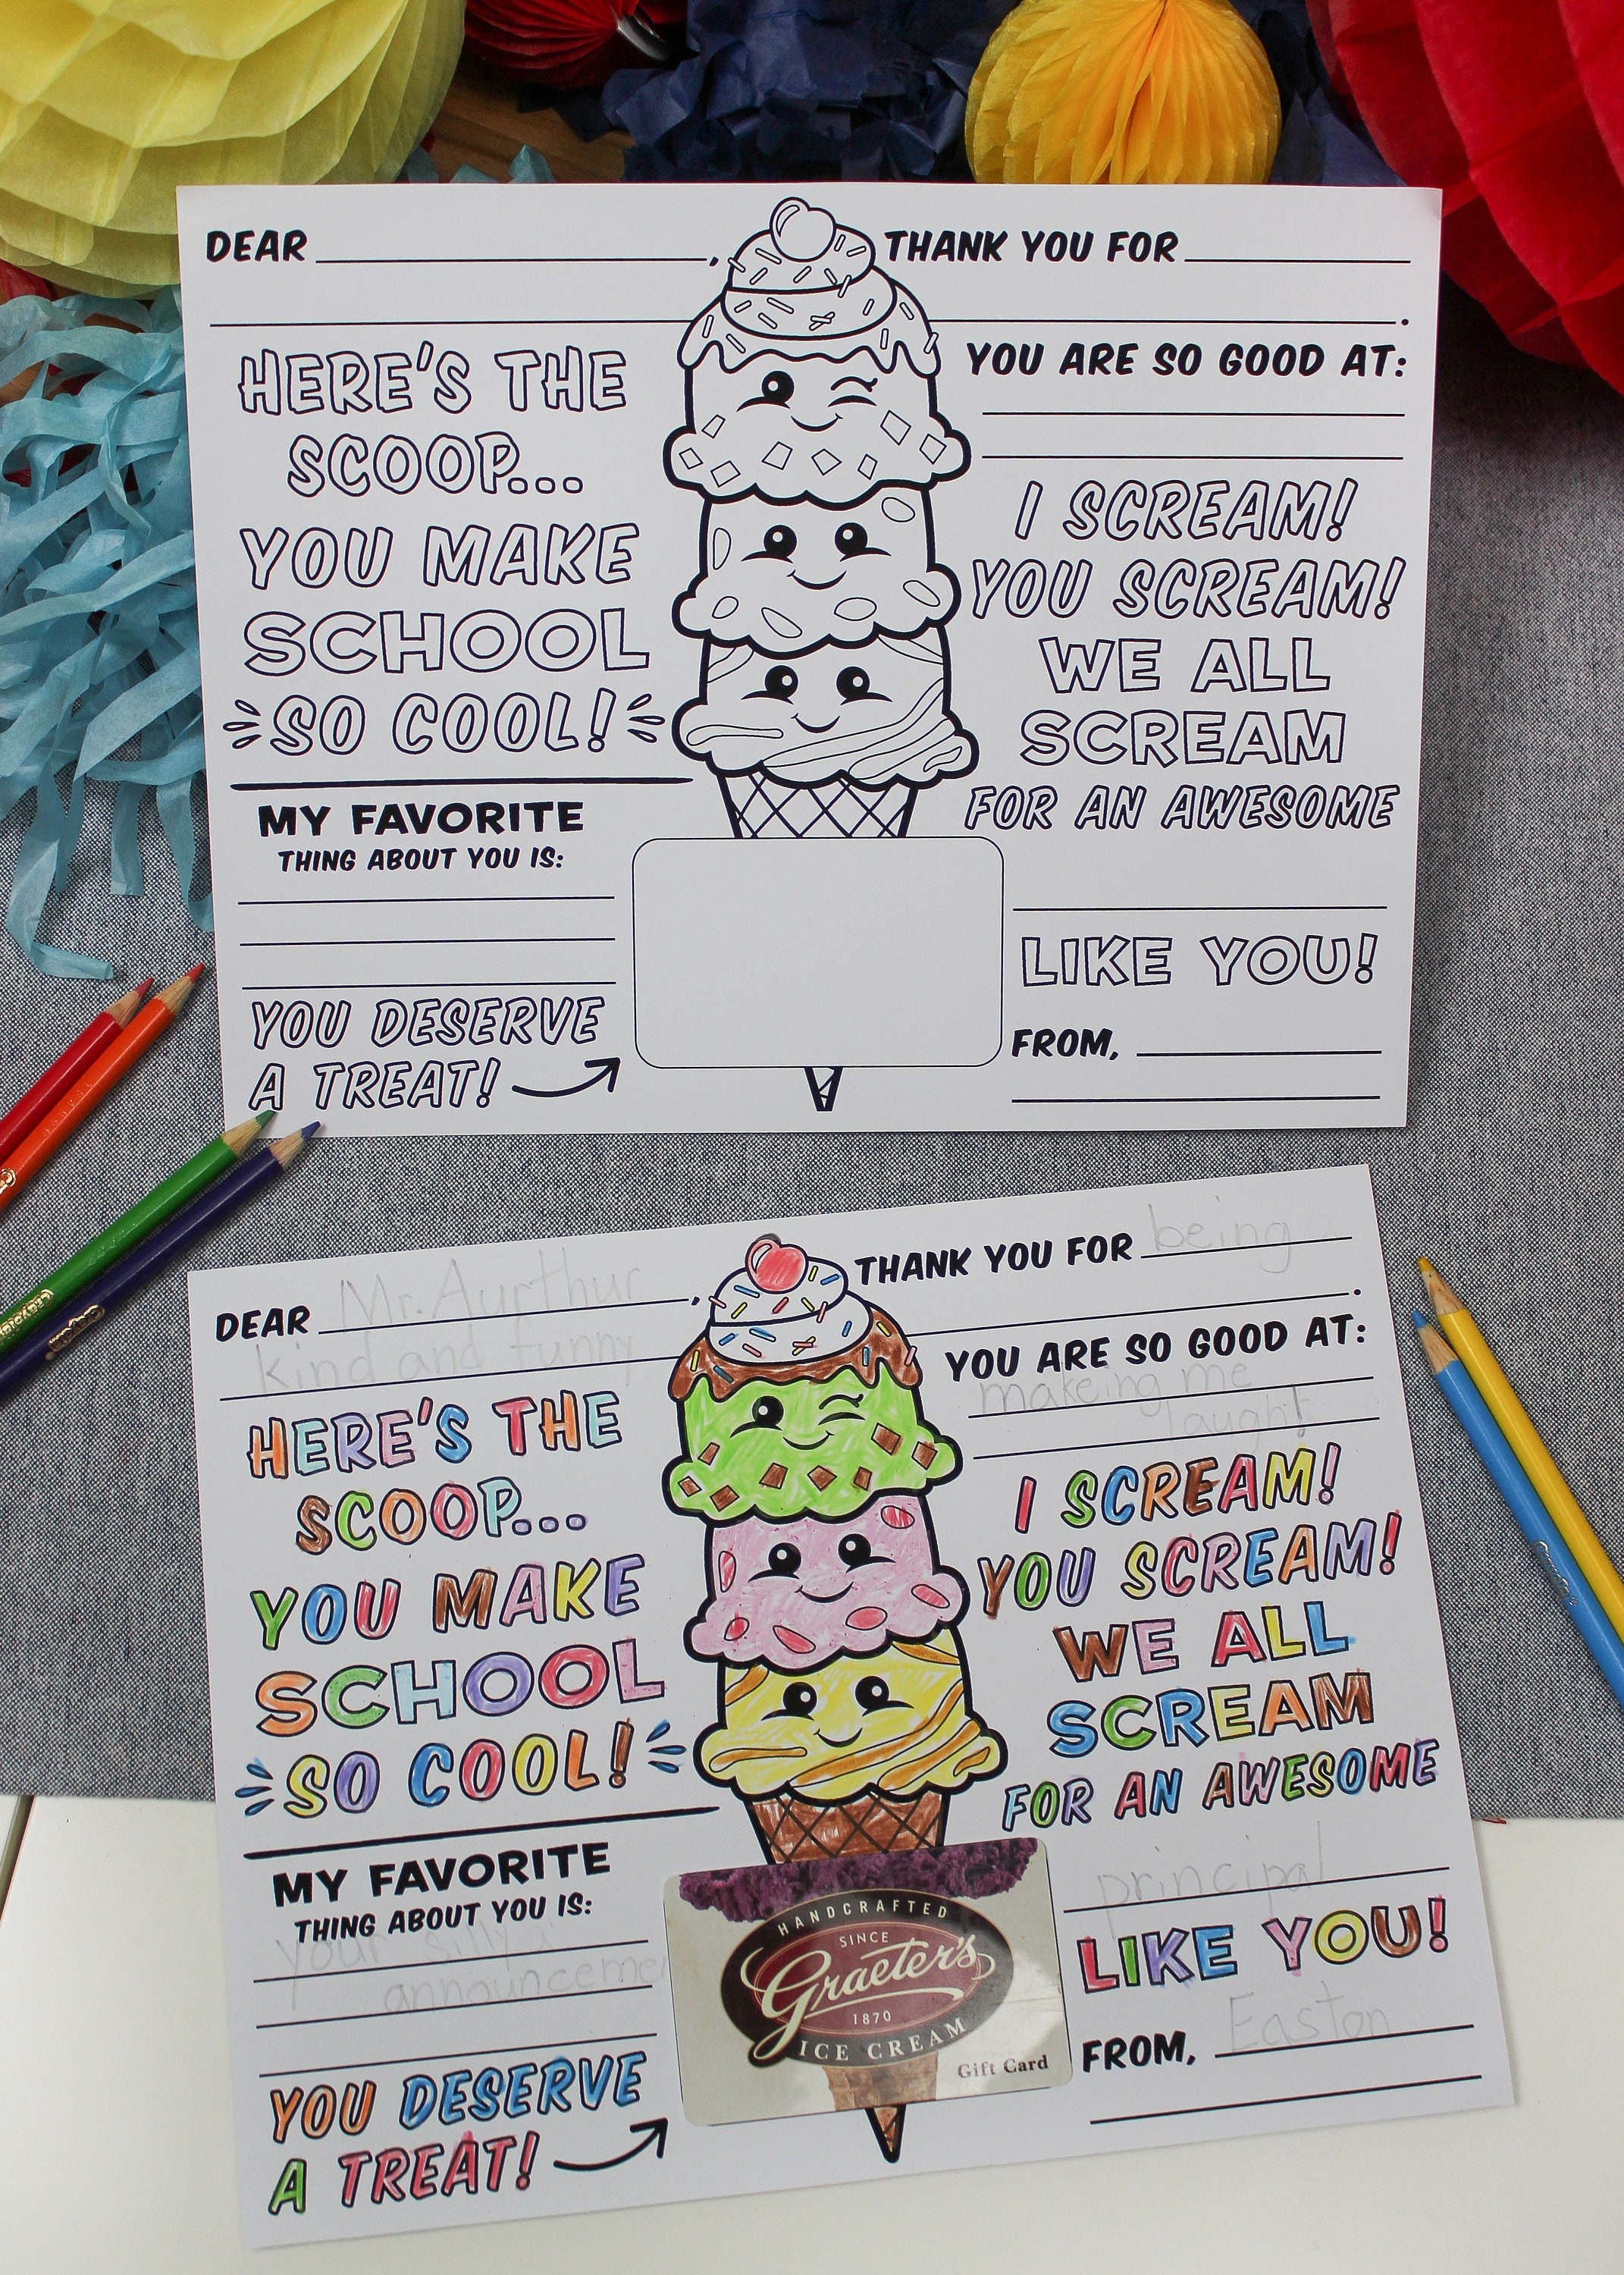 DEAR ____________, THANK YOU FOR ____________
____________.
HERE'S THE
SCOOP...
YOU MAKE
SCHOOL
SO COOL!
MY FAVORITE
THING ABOUT YOU IS:
YOU DESERVE
A TREAT!
YOU ARE SO GOOD AT:
I SCREAM!
YOU SCREAM!
WE ALL
SCREAM
FOR AN AWESOME
LIKE YOU!
FROM,
DEAR Mr. Aurthur, THANK YOU FOR being
kind and funny.
HERE'S THE
SCOOP...
YOU MAKE
SCHOOL
SO COOL!
MY FAVORITE
THING ABOUT YOU IS:
your silly
announcemen
YOU DESERVE
A TREAT!
YOU ARE SO GOOD AT:
makeing me
laugh!
I SCREAM!
YOU SCREAM!
WE ALL
SCREAM
FOR AN AWESOME
principal
LIKE YOU!
FROM, Easton
HANDCRAFTED
SINCE
Graeter's
1870
ICE CREAM
Gift Card
Crayola
Crayola